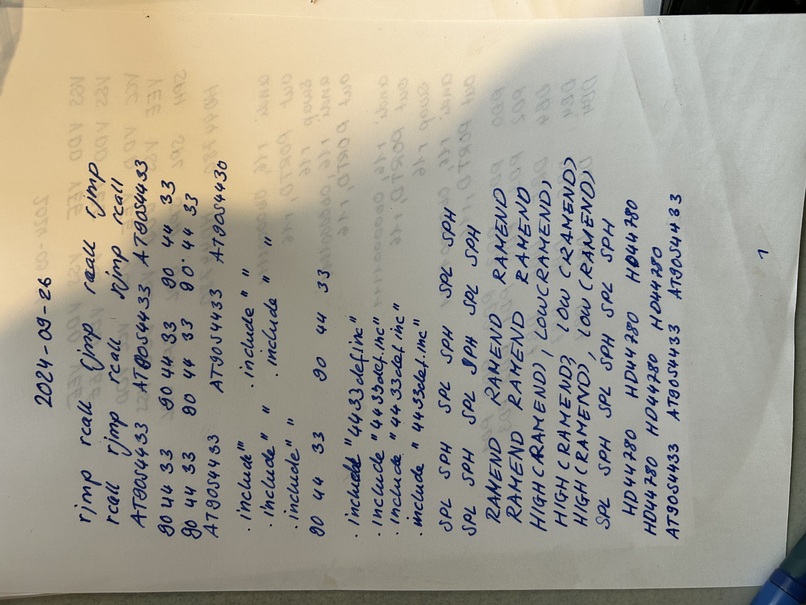 2024-09-26
rjmp rcall rjmp rcall rjmp
rcall rjmp rcall rjmp rcall
AT90S4433 AT90S4433 AT90S4433
90 44 33 90 44 33 90 44 33
90 44 33 90 44 33 90 44 33
AT90S4433 AT90S4433 AT90S4430
.include"" .include " "
.include " " .include " "
.include " "
90 44 33 90 44 33
.include "4433def.inc"
.include "4433def.inc"
.include "4433def.inc"
.include "4433def.inc"
SPL SPH SPL SPH SPL SPH
SPL SPH SPL SPH SPL SPH
RAMEND RAMEND RAMEND
RAMEND RAMEND RAMEND
HIGH(RAMEND), LOW(RAMEND),
HIGH(RAMEND), LOW(RAMEND)
HIGH(RAMEND), LOW(RAMEND),
SPL SPH SPL SPH SPL SPH
HD44780 HD44780 HD44780
HD44780 HD44780 HD44780
AT90S4433 AT90S4433 AT90S4433
1